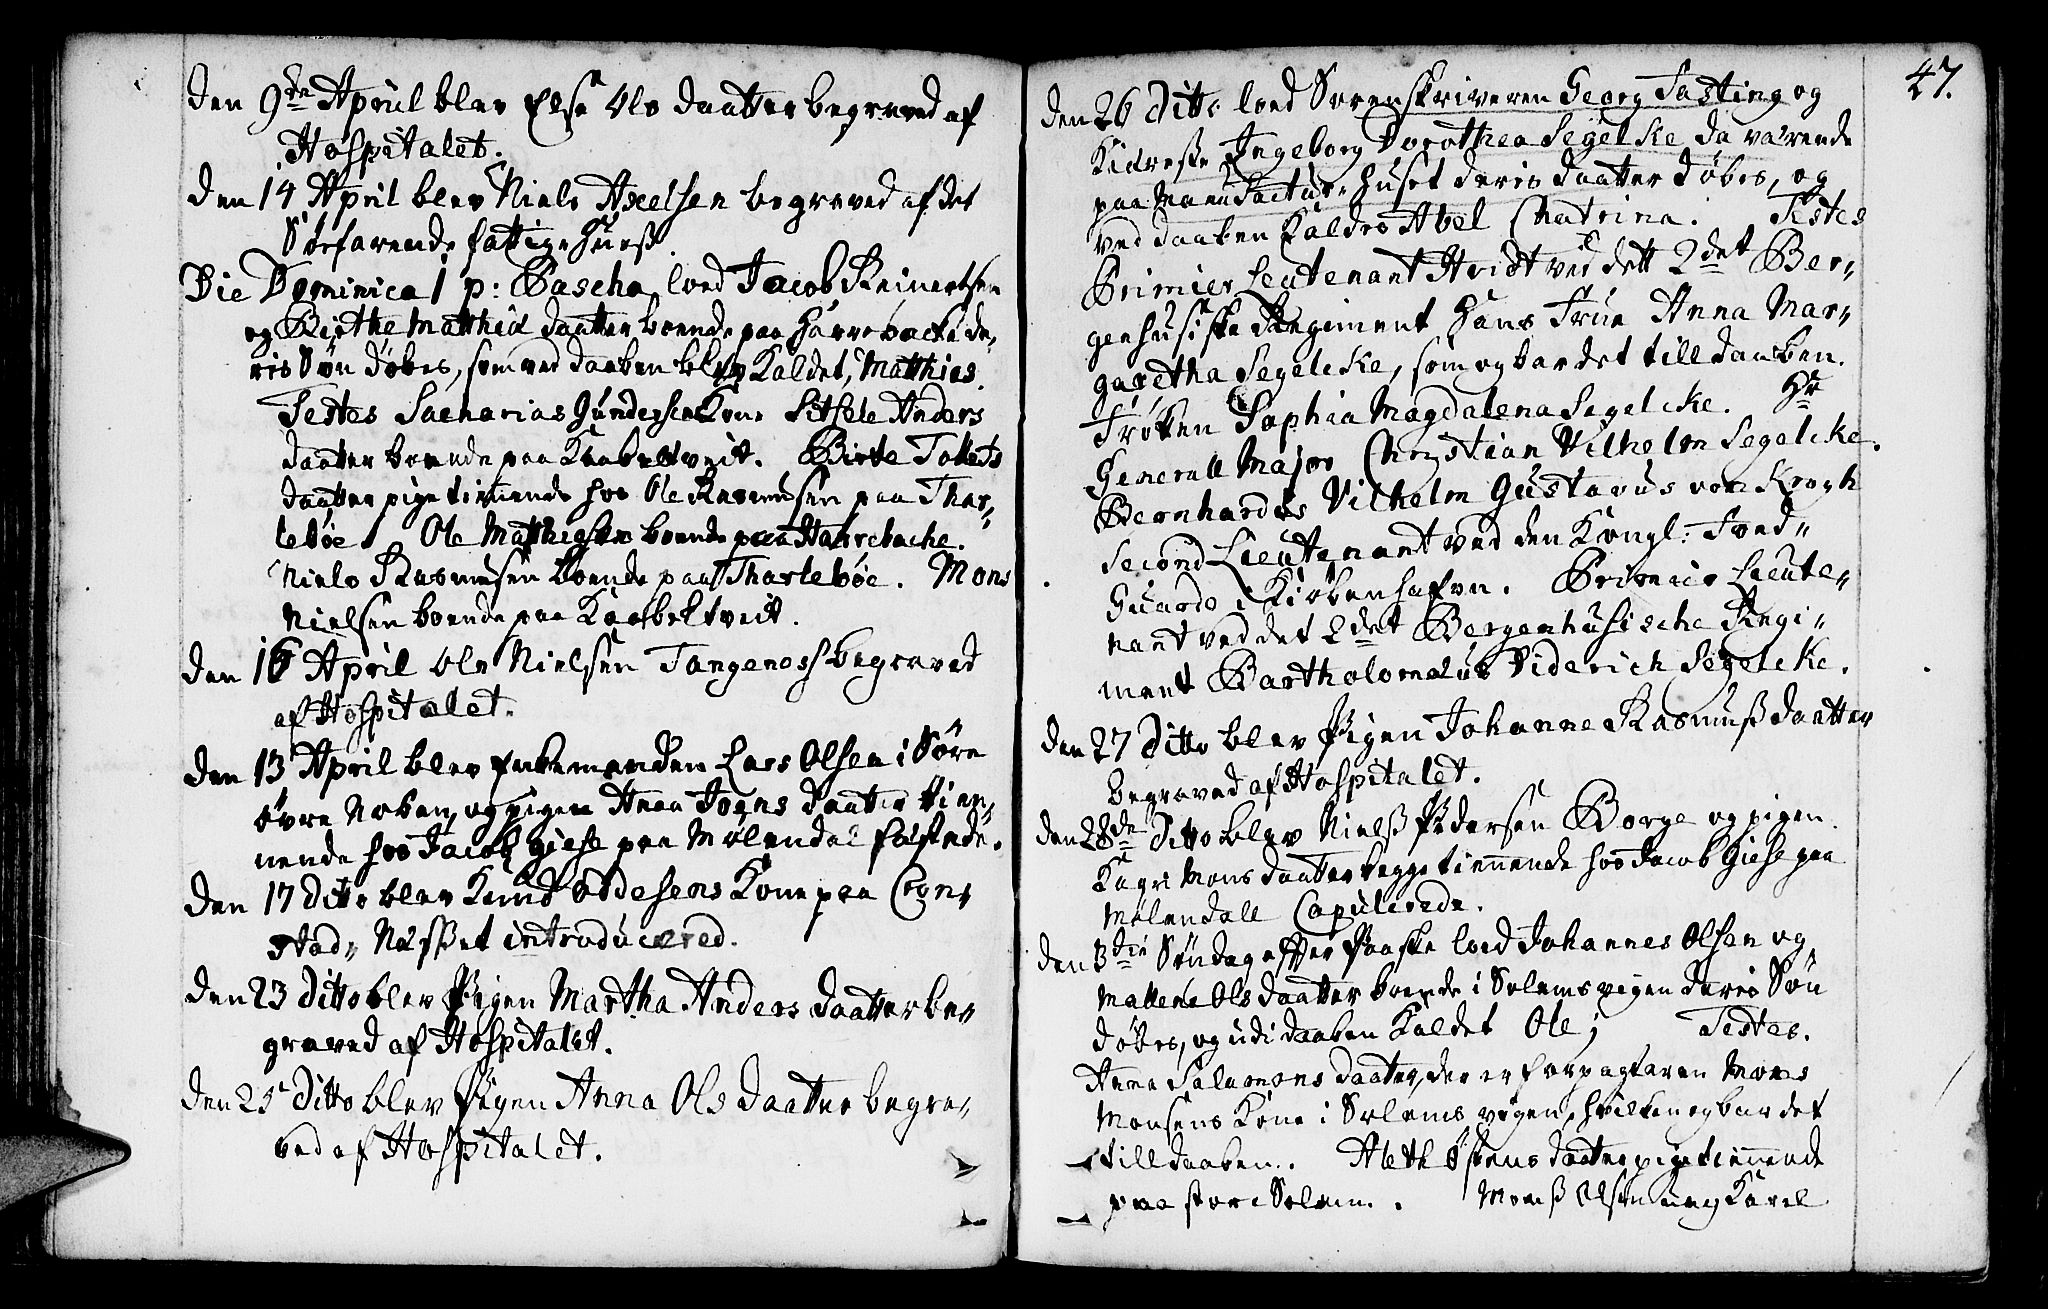 Den 9de April blev Else Ols daatter begraved af
Hospitalet.
Den 14 April blev Niels Axelsen begraved af det
Søefarende fattige Huus.
Die Dominica 1 p: Pascha loed Jacob Reinertsen
og Birthe Matthiæ daatter boende paa Harrebacke de-
ris Søn døbes, som ved daaben blev Kaldet, Matthias.
Testes Sacharias Gundersens Kone Sitsele Anders
daatter boende paa Knabeltveit. Birte Tollefs
daatter pige tienende hos Ole Rasmusen paa Thar-
tebøe. Ole Matthiesen boende paa Harrebache.
Niels Rasmusen boende paa Thartebøe. Mons
Nielsen boende paa Knabeltveit.
Den 16 April Ole Nielsen Tangenes begraved
af Hospitalet.
Den 13 April blev Enkemanden Lars Olsen i Søre
øvre Noben, og pigen Anna Joens daatter tien-
nende hos Jacob Giese paa Mølendal fæstede.
Den 17 Ditto blev Knud Oddesens Kone paa Cron-
stad- Næsset introduceered.
Den 23 Ditto blev Pigen Martha Anders daatter be-
graved af Hospitalet.
Den 25 Ditto blev Pigen Anna Ols daatter begra-
ved af Hospitalet.
47.
Den 26 Ditto loed Sorenskriveren Georg Fasting og
Kiæreste Ingeborg Dorothea Segelcke da værende
paa Manufactur-Huset deris daatter døbes, og
ved daaben Kaldes Abel Chatrina. Testes
Primier Leutenant Hvidt ved dett 2det Ber-
genhusiske Regiment Hans Frue Anna Mar-
garetha Segelcke, som og bar det till daaben.
Frøken Sophia Magdalena Segelcke. Hr
Generall Major Chrystian Vilhelm Segelcke.
Bernhardus Vilhelm Gustavus von Krogh
Second Lieutenant ved den Kongl: Fod-
Guarde i Kiøbenhafvn. Primier Lieute-
nant ved det 2det Bergenhusische Regi-
ment Bartholomæus Diderich Segelcke.
Den 27 Ditto blev Pigen Johanne Rasmus daatter
begraved af Hospitalet.
Den 28de Ditto blev Niels Pedersen Borge og pigen
Kari Mons daatter begge tiennende hos Jacob Giese paa
Mølendall Copulerede.
Den 3die Søndag efter Paaske loed Johannes Olsen og
Mallene Ols daatter boende i Solemsvigen deris Søn
døbes, og udi daaben Kaldet Ole; Testes.
Anna Salamons daater, der er forpagteren Mons
Monsens Kone i Solemsvigen, hvilken og bar det
till daaben. Aleth Østens daatter pige tiennende
paa store Solem. Mons Olsen ung Karel